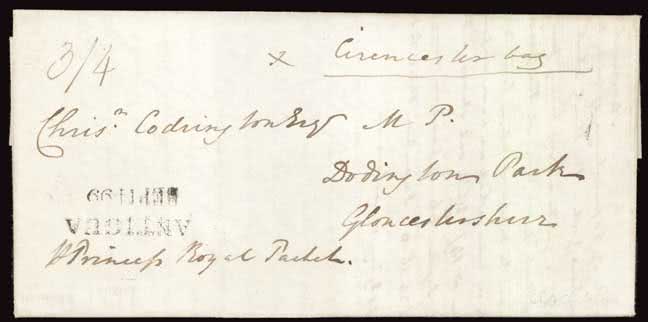 3/4
x Cirencester bag
Chris.r Codrington Esqr M P.
Dodington Park
Gloucestershire
ANTIGUA
Princess Royal Packet.